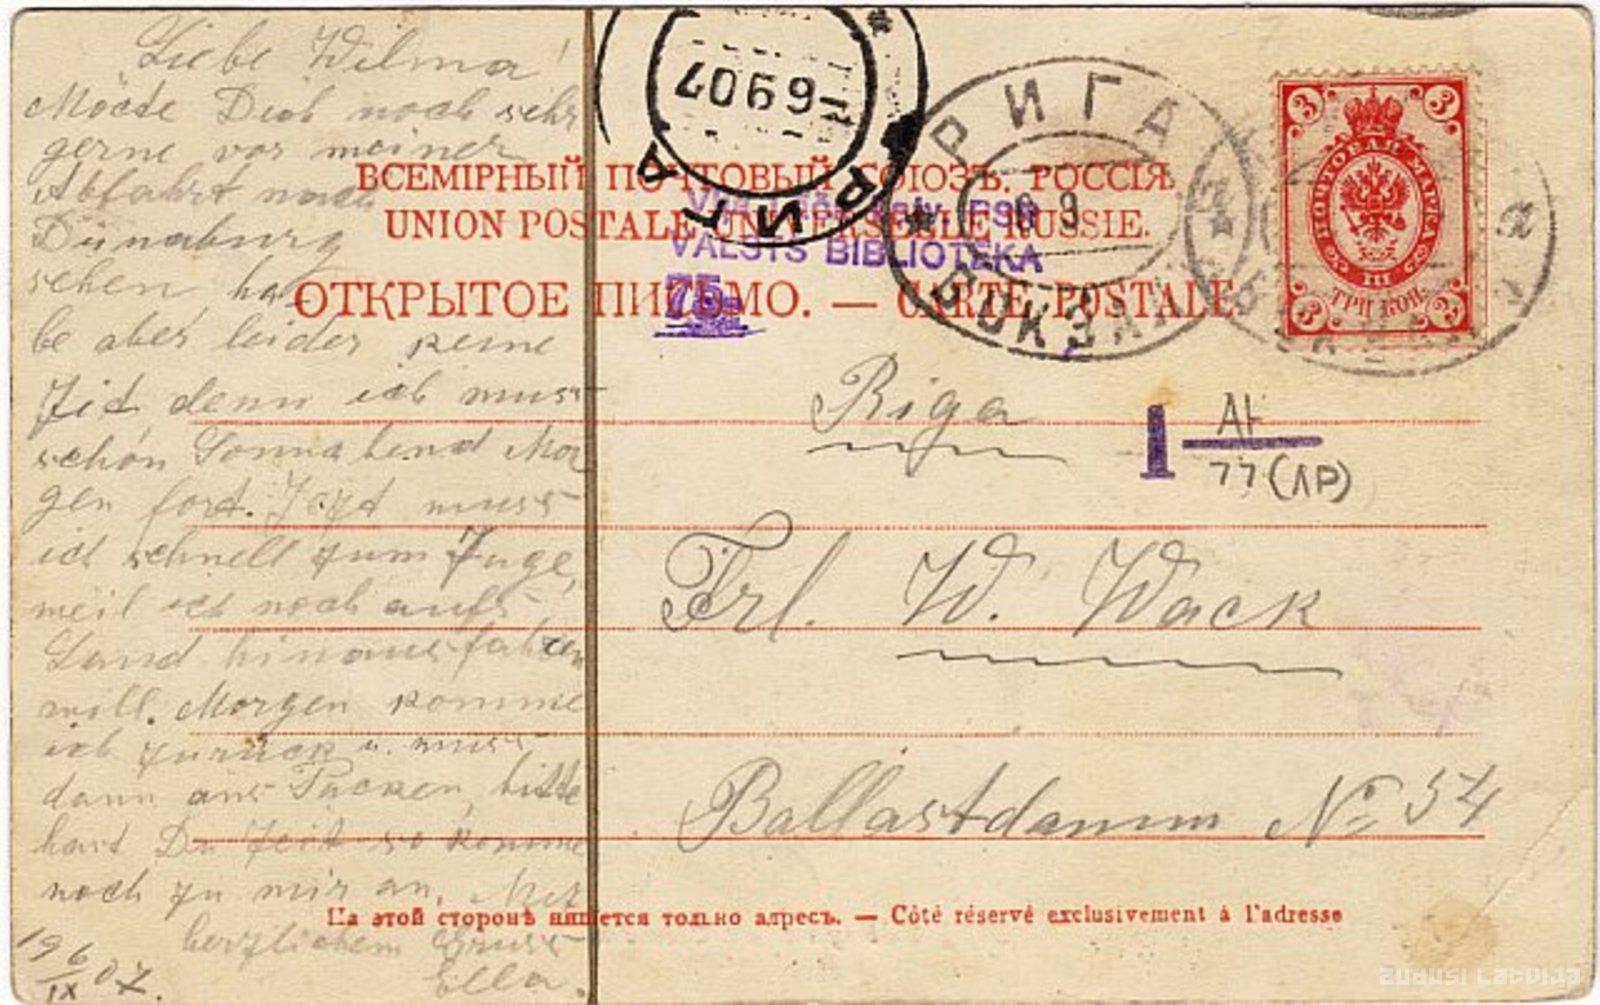 Liebe Wilma!
Möcte Dich noch sehr
gerne vor meiner
Abfahrt nach
Dünaburg
sehen ha
be aber leider keine
Zeit denn ich muss
schon Sonnabend Mor
gen fort. Jezt muss
ich schnell zum Zuge,
weil ich noch aufs
Land hinausfahren
will. Morgen komme
ich zurück u. muss
dann ans Packen, bitte
hast Du Zeit so komme
noch zu mir an. Mit
herzlichem Gruss
Ella.
19 6/IX 07.
6 9 07
РИГА
РИГА
ВОКЗАЛ
ВСЕМІРНЫЙ ПОЧТОВЫЙ СОЮЗЪ. РОССІЯ.
UNION POSTALE UNIVERSELLE RUSSIE.
VALSTS BIBLIOTEKA
75
ОТКРЫТОЕ ПИСЬМО. — CARTE POSTALE.
3 3
ПОЧТОВАЯ МАРКА
ТРИ КОП.
3 3
Riga
1 АК
77 (ЛР)
Frl. W. Wack
Ballastdamm No 54
На этой сторонѣ пишется только адресъ. — Côté réservé exclusivement à l'adresse
zudusi latvija